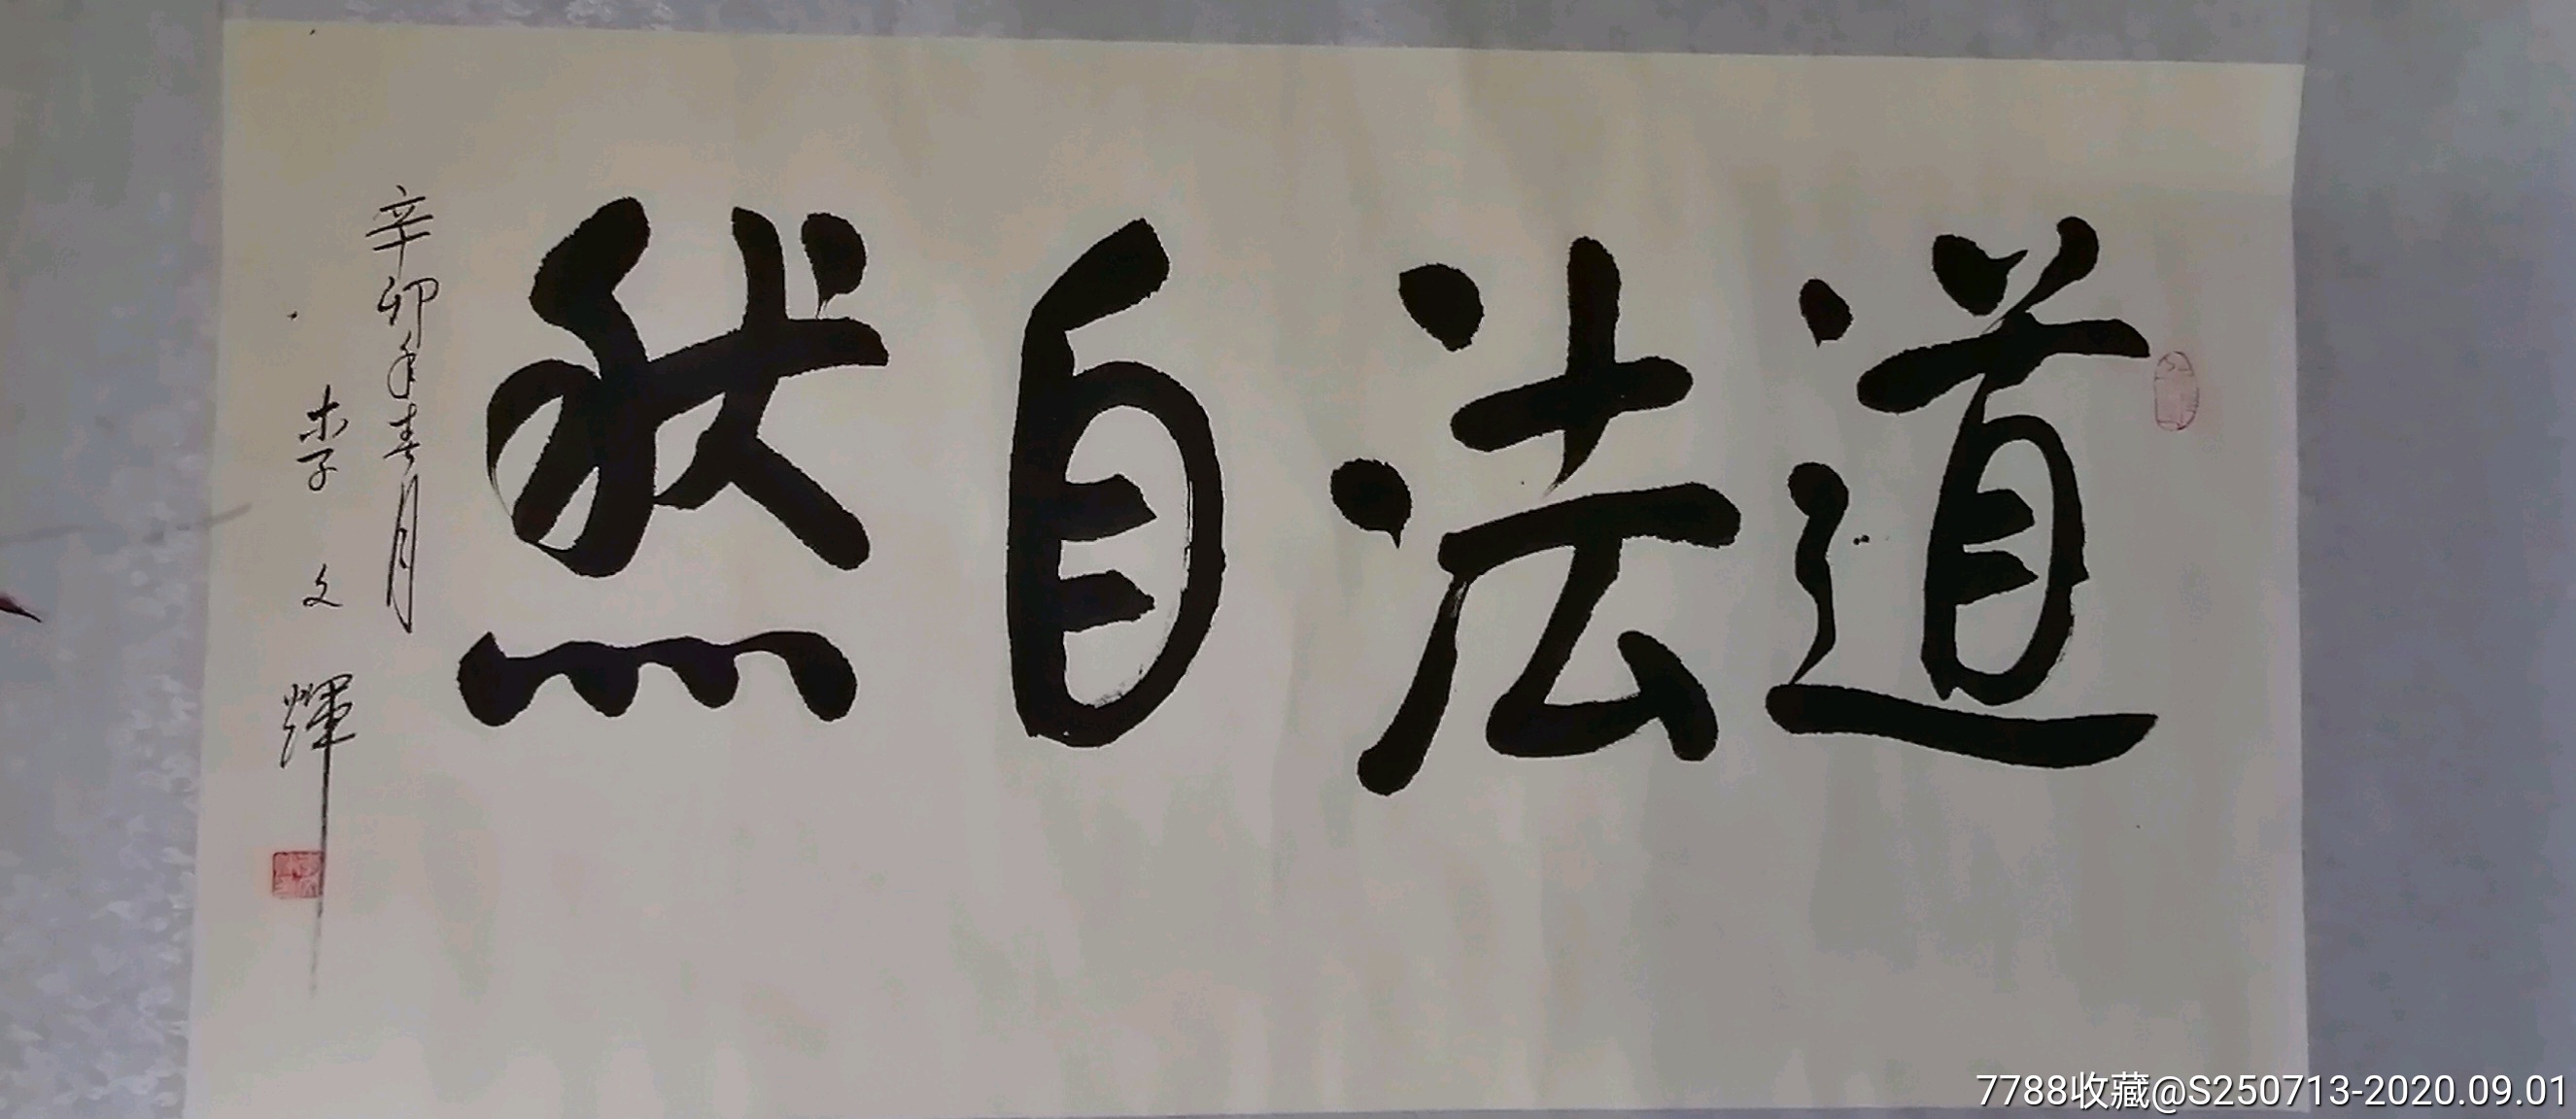 道法自然
辛卯年春月
李文輝
7788收藏@S250713-2020.09.01